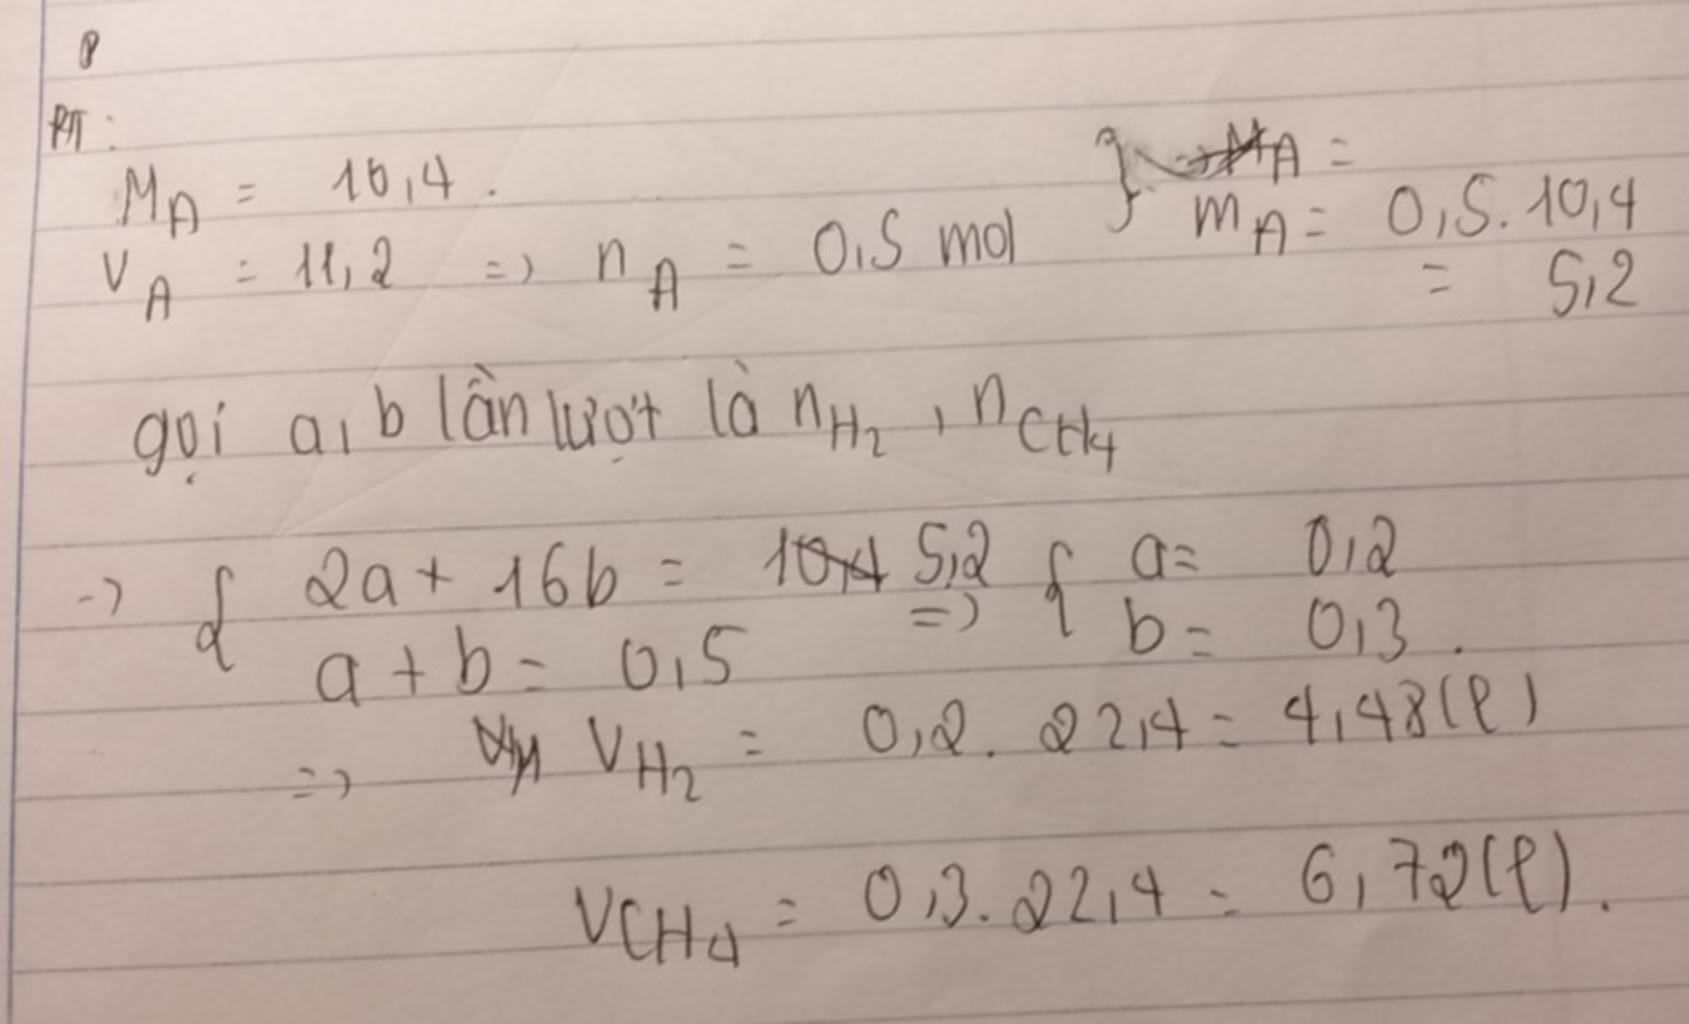 PT:
M_A = 10,4.
V_A = 11,2 => n_A = 0,5 mol } m_A = 0,5.10,4
= 5,2
gọi a, b lần lượt là n_H2, n_CH4
-> { 2a + 16b = 10,4 5,2 => { a = 0,2
a + b = 0,5 b = 0,3.
=> V_H2 = 0,2. 22,4 = 4,48(l)
V_CH4 = 0,3. 22,4 = 6,72(l).